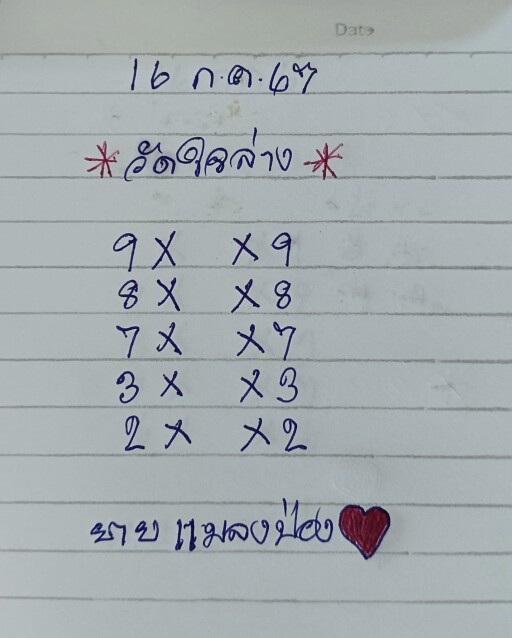 Date
16 ก.ค.67
*วัดใจล่าง*
9X X9
8X X8
7X X7
3X X3
2X X2
ยายแมลงป่อง